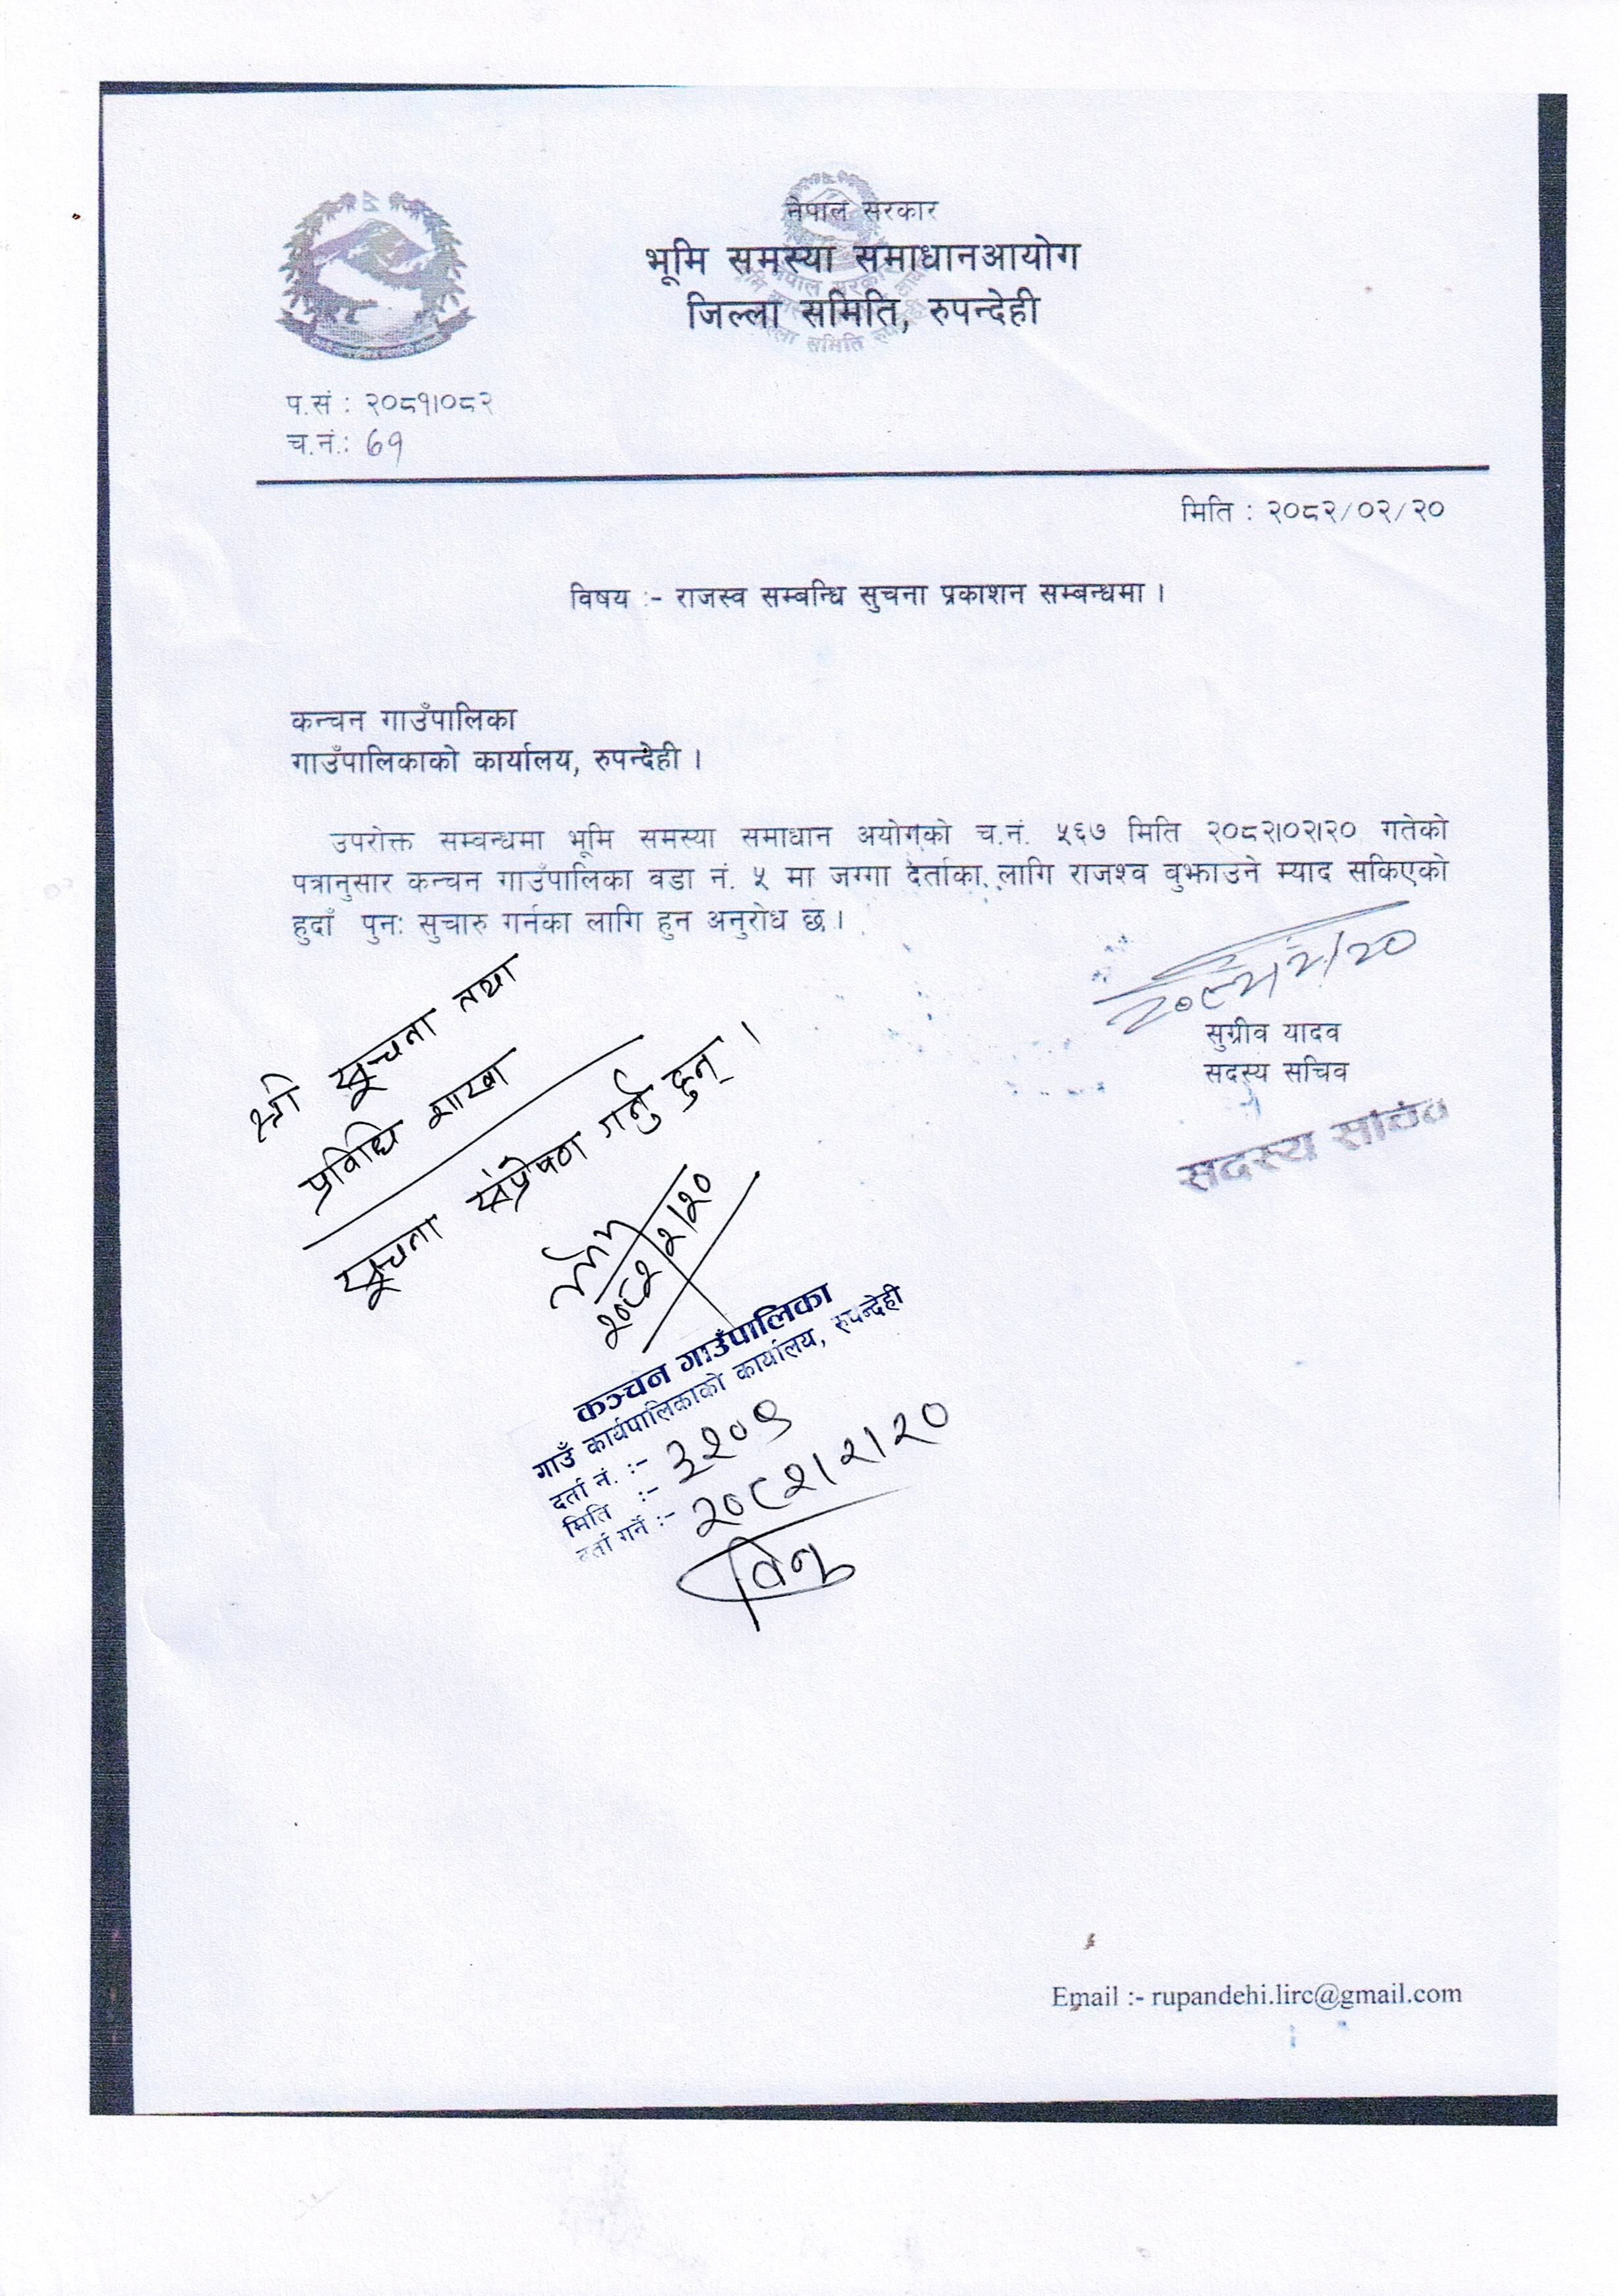 नेपाल सरकार
भूमि समस्या समाधानआयोग
जिल्ला समिति, रुपन्देही
प.सं : २०८१।०८२
च.नं.: ७१
मिति : २०८२/०२/२०
विषय :- राजस्व सम्बन्धि सुचना प्रकाशन सम्बन्धमा ।
कन्चन गाउँपालिका
गाउँपालिकाको कार्यालय, रुपन्देही ।
उपरोक्त सम्वन्धमा भूमि समस्या समाधान अयोगको च.नं. ५६७ मिति २०८२।०२।२० गतेको
पत्रानुसार कन्चन गाउँपालिका वडा नं. ५ मा जग्गा दर्ताका लागि राजश्व वुझाउने म्याद सकिएको
हुदाँ पुनः सुचारु गर्नका लागि हुन अनुरोध छ ।
२०८२/२/२०
सुग्रीव यादव
सदस्य सचिव
सदस्य सचिव
श्री सूचना तथा
प्रविधि शाखा
सूचना संप्रेषण गर्नु हुन् ।
२०८२/२/२०
कञ्चन गाउँपालिका
गाउँ कार्यपालिकाको कार्यालय, रुपन्देही
दर्ता नं. :- ३२०९
मिति :- २०८२।२।२०
दर्ता गर्ने :-
Email :- rupandehi.lirc@gmail.com